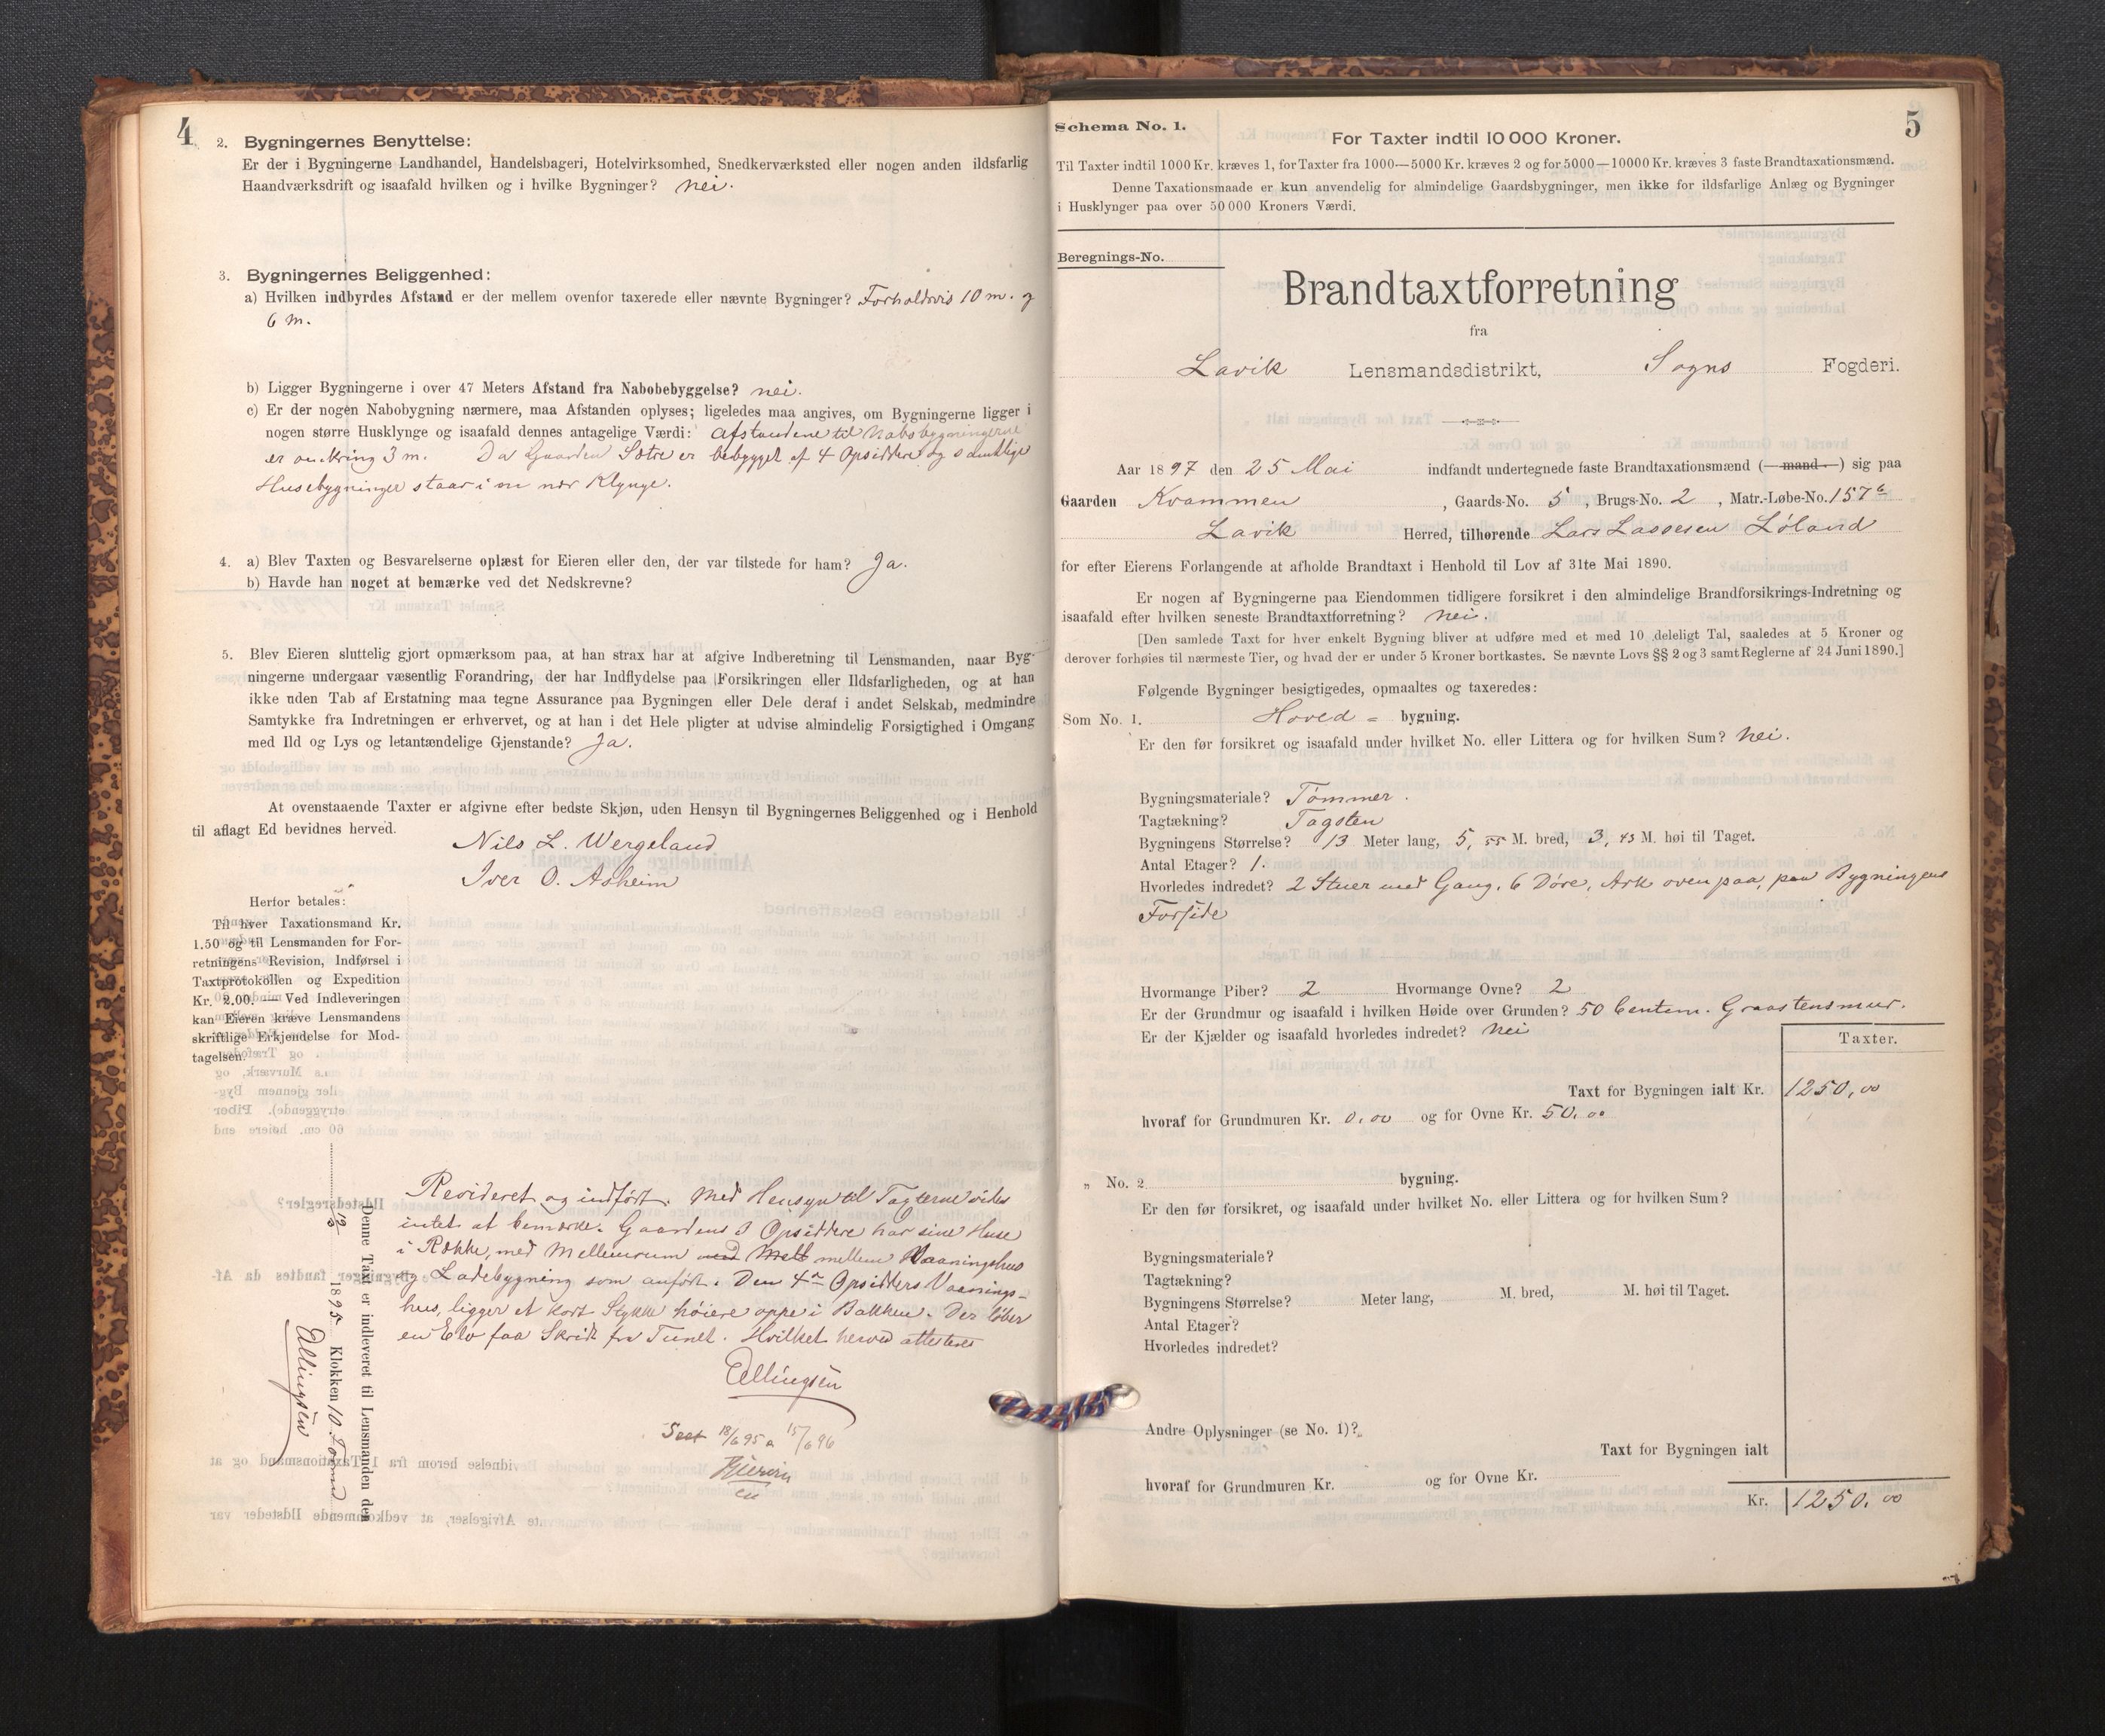 4
2. Bygningernes Benyttelse:
Er der i Bygningerne Landhandel, Handelsbageri, Hotelvirksomhed, Snedkerværksted eller nogen anden ildsfarlig
Haandværksdrift og isaafald hvilken og i hvilke Bygninger? nei.
3. Bygningernes Beliggenhed:
a) Hvilken indbyrdes Afstand er der mellem ovenfor taxerede eller nævnte Bygninger? Forholdsvis 10 m. og
6 m.
b) Ligger Bygningerne i over 47 Meters Afstand fra Nabobebyggelse? nei.
c) Er der nogen Nabobygning nærmere, maa Afstanden oplyses; ligeledes maa angives, om Bygningerne ligger i
nogen større Husklynge og isaafald dennes antagelige Værdi: Afstandene til Nabobygningerne
er omkring 3 m. Da Gaarden Sætre er bebygget af 4 Opsiddere og samtlige
Husebygninger staar i en nær Klynge.
4. a) Blev Taxten og Besvarelserne oplæst for Eieren eller den, der var tilstede for ham? Ja.
b) Havde han noget at bemærke ved det Nedskrevne?
5. Blev Eieren sluttelig gjort opmærksom paa, at han strax har at afgive Indberetning til Lensmanden, naar Byg-
ningerne undergaar væsentlig Forandring, der har Indflydelse paa Forsikringen eller Ildsfarligheden, og at han
ikke uden Tab af Erstatning maa tegne Assurance paa Bygningen eller Dele deraf i andet Selskab, medmindre
Samtykke fra Indretningen er erhvervet, og at han i det Hele pligter at udvise almindelig Forsigtighed i Omgang
med Ild og Lys og letantændelige Gjenstande? Ja.
At ovenstaaende Taxter er afgivne efter bedste Skjøn, uden Hensyn til Bygningernes Beliggenhed og i Henhold
til aflagt Ed bevidnes herved.
Nils L. Wergeland
Iver O. Asheim
Herfor betales:
Til hver Taxationsmand Kr.
1.50 og til Lensmanden for For-
retningens Revision, Indførsel i
Taxtprotokollen og Expedition
Kr. 2.00. — Ved Indleveringen
kan Eieren kræve Lensmandens
skriftlige Erkjendelse for Mod-
tagelsen.
Denne Taxt er indleveret til Lensmanden den
1895. Klokken 10. Formd
Ellingsen
Revideret og indført. Med Hensyn til Taxterne vides
intet at bemærke. Gaardens 3 Opsiddere har sine Huse
i Række, med Mellemrum mellem Vaaningshus
og Ladebygning som anført. Den 4de Opsidders Vaanings-
hus, ligger et kort Stykke høiere oppe i Bakken. Der løber
en Elv faa Skridt fra Tunet. Hvilket herved attesteres
Ellingsen
Seet 18/6 95 a 15/6 96
5
Schema No. 1.
For Taxter indtil 10 000 Kroner.
Til Taxter indtil 1000 Kr. kræves 1, for Taxter fra 1000—5000 Kr. kræves 2 og for 5000—10000 Kr. kræves 3 faste Brandtaxationsmænd.
Denne Taxationsmaade er kun anvendelig for almindelige Gaardsbygninger, men ikke for ildsfarlige Anlæg og Bygninger
i Husklynger paa over 50 000 Kroners Værdi.
Beregnings-No.
Brandtaxtforretning
fra
Lavik Lensmandsdistrikt, Sogns Fogderi.
Aar 1897 den 25 Mai indfandt undertegnede faste Brandtaxationsmænd (— mand —) sig paa
Gaarden Kvammen, Gaards-No. 5, Brugs-No. 2, Matr.-Løbe-No. 157b
Lavik Herred, tilhørende Lars Lassesen Løland
for efter Eierens Forlangende at afholde Brandtaxt i Henhold til Lov af 31te Mai 1890.
Er nogen af Bygningerne paa Eiendommen tidligere forsikret i den almindelige Brandforsikrings-Indretning og
isaafald efter hvilken seneste Brandtaxtforretning? nei.
[Den samlede Taxt for hver enkelt Bygning bliver at udføre med et med 10 deleligt Tal, saaledes at 5 Kroner og
derover forhøies til nærmeste Tier, og hvad der er under 5 Kroner bortkastes. Se nævnte Lovs §§ 2 og 3 samt Reglerne af 24 Juni 1890.]
Følgende Bygninger besigtigedes, opmaaltes og taxeredes:
Som No. 1. Hoved - bygning.
Er den før forsikret og isaafald under hvilket No. eller Littera og for hvilken Sum? Nei.
Bygningsmateriale? Tømmer.
Tagtækning? Tagsten
Bygningens Størrelse? 13 Meter lang, 5, 55 M. bred, 3, 43 M. høi til Taget.
Antal Etager? 1.
Hvorledes indredet? 2 Stuer med Gang, 6 Døre, Ark oven paa, paa Bygningens
Forside
Hvormange Piber? 2 Hvormange Ovne? 2
Er der Grundmur og isaafald i hvilken Høide over Grunden? 50 Centem. Graastensmur.
Er der Kjælder og isaafald hvorledes indredet? Nei
Taxter.
Taxt for Bygningen ialt Kr. 1250,00
hvoraf for Grundmuren Kr. 0,00 og for Ovne Kr. 50,00
„ No. 2 bygning.
Er den før forsikret, og isaafald under hvilket No. eller Littera og for hvilken Sum?
Bygningsmateriale?
Tagtækning?
Bygningens Størrelse? Meter lang, M. bred, M. høi til Taget.
Antal Etager?
Hvorledes indredet?
Andre Oplysninger (se No. 1)?
Taxt for Bygningen ialt
hvoraf for Grundmuren Kr. og for Ovne Kr.
Kr. 1250,00